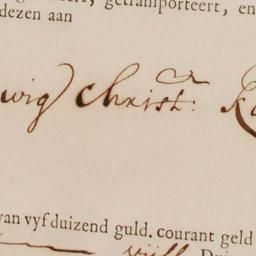 getransporteert, en
dezen aan
wig Christ:
van vyf duizend guld. courant geld